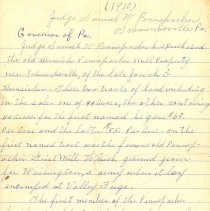 (1900)
Judge Samuel W. Pennypacker
Schwenksville Pa.
Governor of Pa.
Judge Samuel W. Pennypacker has purchased
the old Heinrich Pennypacker Mill Property
near Schwenksville, of the late Josiah E.
Hunsicker. There two tracts of land including
in the sale: one of acres, the other containing
acres for the first named he gave $69.
Per Acre and the latter $55. Per Acre on the
first named tract was the famous old Penny-
packer Grist Mill Which ground grain
for Washington's army when it lay
encamped at Valley Forge.
The first member of the Pennypacker